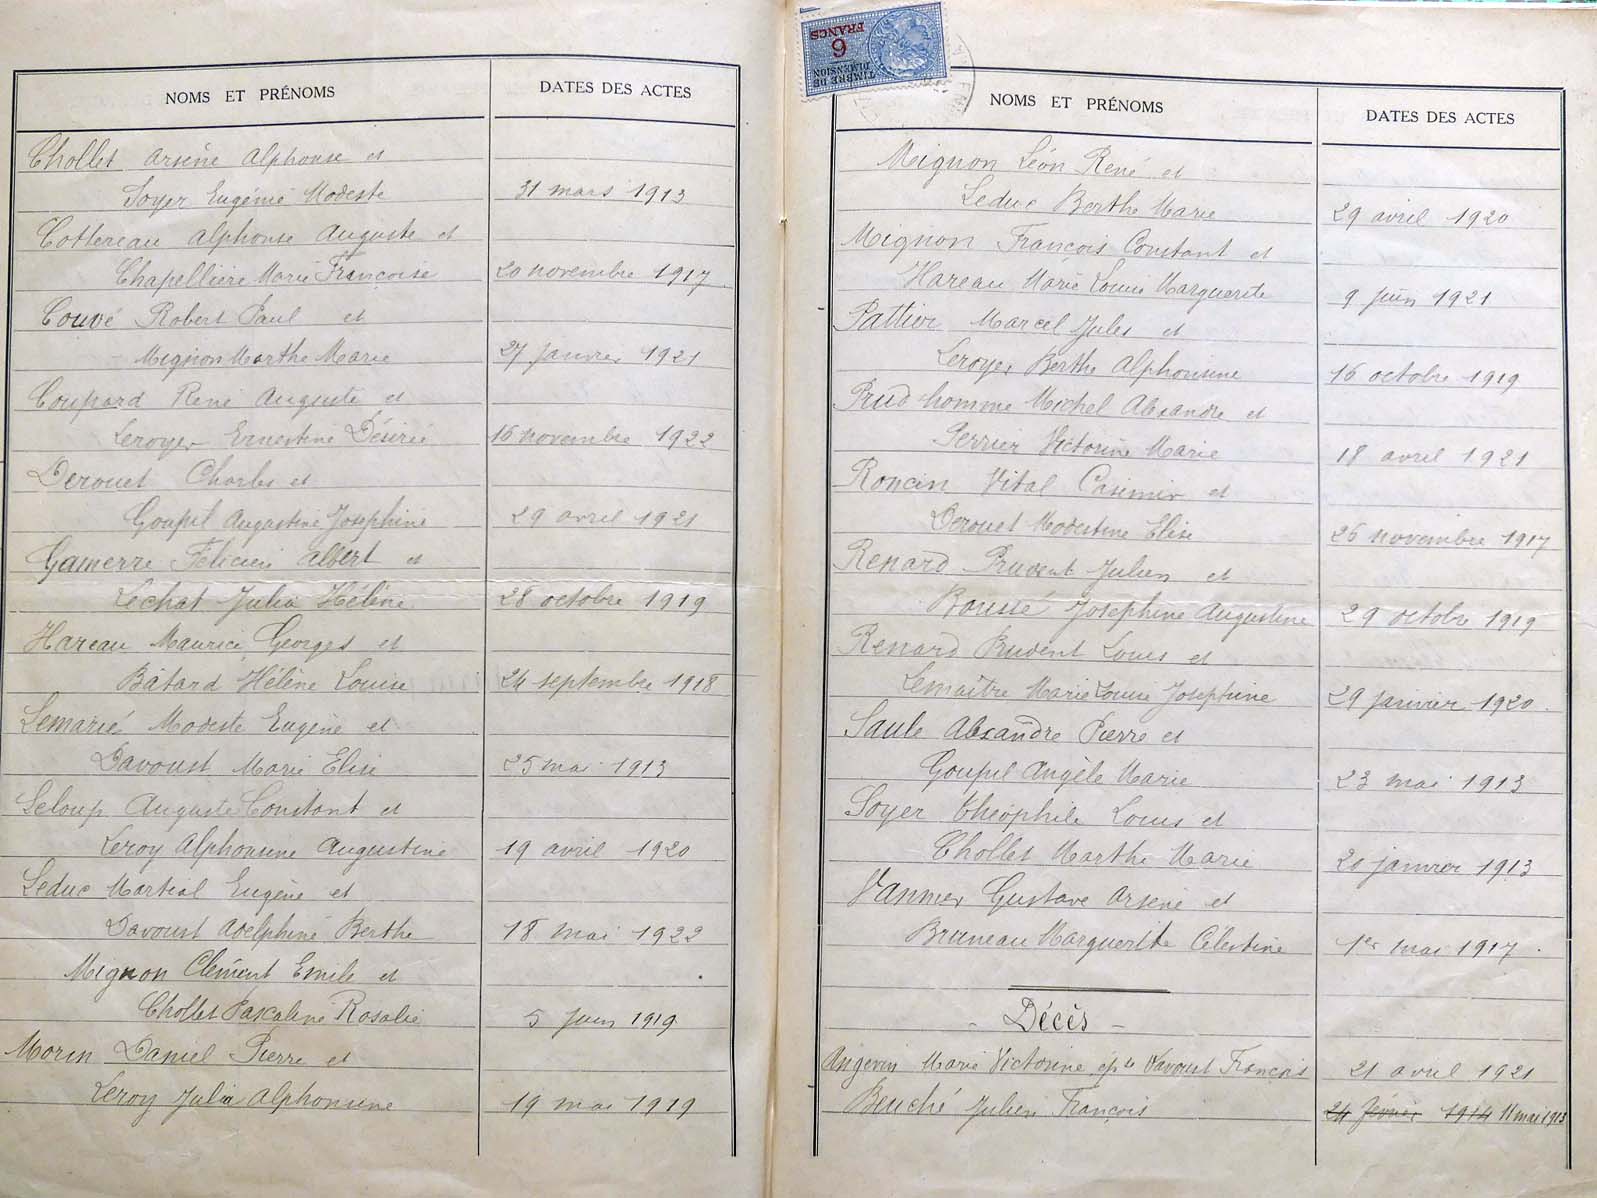 NOMS ET PRÉNOMS DATES DES ACTES
Chollet Arsène Alphonse et
Soyer Eugénie Modeste 31 mars 1913
Cottereau Alphonse Auguste et
Chapellière Marie Françoise 20 novembre 1917
Couvé Robert Paul et
Mignon Marthe Marie 27 Janvier 1921
Coupard René Auguste et
Leroyer Ernestine Désirée 16 novembre 1922
Derouet Charles et
Goupil Augustine Joséphine 29 avril 1921
Gamerre Félicien Albert et
Lechat Julia Hélène 28 octobre 1919
Hareau Maurice Georges et
Bâtard Hélène Louise 24 septembre 1918
Lemarié Modeste Eugène et
Davoust Marie Elise 25 mai 1913
Leloup Auguste Constant et
Leroy Alphonsine Augustine 19 avril 1920
Leduc Martial Eugène et
Davoust Adelphine Berthe 18 mai 1922
Mignon Clément Emile et
Chollet Pascaline Rosalie 5 Juin 1919
Morin Daniel Pierre et
Leroy Julia Alphonsine 19 mai 1919
6
FRANCS
TIMBRE DE
DIMENSION
NOMS ET PRÉNOMS DATES DES ACTES
Mignon Léon René et
Leduc Berthe Marie 29 avril 1920
Mignon François Constant et
Hareau Marie Louise Marguerite 9 juin 1921
Pattier Marcel Jules et
Leroyer Berthe Alphonsine 16 octobre 1919
Prud'homme Michel Alexandre et
Perrier Victorine Marie 18 avril 1921
Roncin Vital Casimir et
Derouet Modestine Elise 26 novembre 1917
Renard Prudent Julien et
Boussé Joséphine Augustine 29 octobre 1919
Renard Prudent Louis et
Lemaître Marie Louise Joséphine 29 Janvier 1920
Saule Alexandre Pierre et
Goupil Angèle Marie 23 mai 1913
Soyer Théophile Louis et
Chollet Marthe Marie 20 janvier 1913
Vannier Gustave Arsène et
Bruneau Marguerite Célestine 1er mai 1917
- Décès -
Angevin Marie Victorine épse Davoust François 21 avril 1921
Beuché Julien François 24 février 1914 11 mai 1913